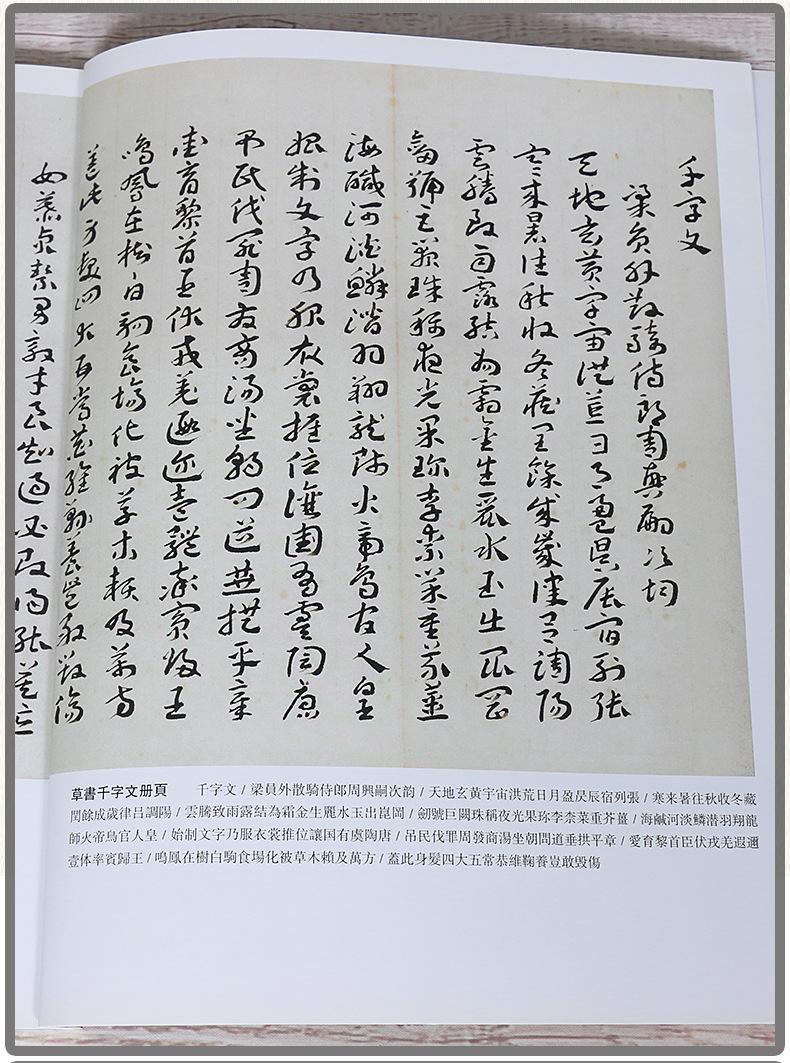 千字文
梁員外散騎侍郎周興嗣次韵
天地玄黄宇宙洪荒日月盈昃辰宿列張
寒来暑往秋收冬藏閏餘成歲律吕調陽
雲騰致雨露結為霜金生麗水玉出崑岡
劒號巨闕珠稱夜光果珍李柰菜重芥薑
海鹹河淡鱗潜羽翔龍師火帝鳥官人皇
始制文字乃服衣裳推位讓国有虞陶唐
吊民伐罪周發商湯坐朝問道垂拱平章
愛育黎首臣伏戎羌遐邇壹体率賓歸王
鳴鳳在樹白駒食場化被草木賴及萬方
蓋此身髮四大五常恭維鞠養豈敢毀傷
女慕貞絜男效才良知過必改得能莫忘
草書千字文册頁 千字文 / 梁員外散騎侍郎周興嗣次韵 / 天地玄黄宇宙洪荒日月盈昃辰宿列張 / 寒来暑往秋收冬藏
閏餘成歲律吕調陽 / 雲騰致雨露結為霜金生麗水玉出崑岡 / 劒號巨闕珠稱夜光果珍李柰菜重芥薑 / 海鹹河淡鱗潜羽翔龍
師火帝鳥官人皇 / 始制文字乃服衣裳推位讓国有虞陶唐 / 吊民伐罪周發商湯坐朝問道垂拱平章 / 愛育黎首臣伏戎羌遐邇
壹体率賓歸王 / 鳴鳳在樹白駒食場化被草木賴及萬方 / 蓋此身髮四大五常恭維鞠養豈敢毀傷